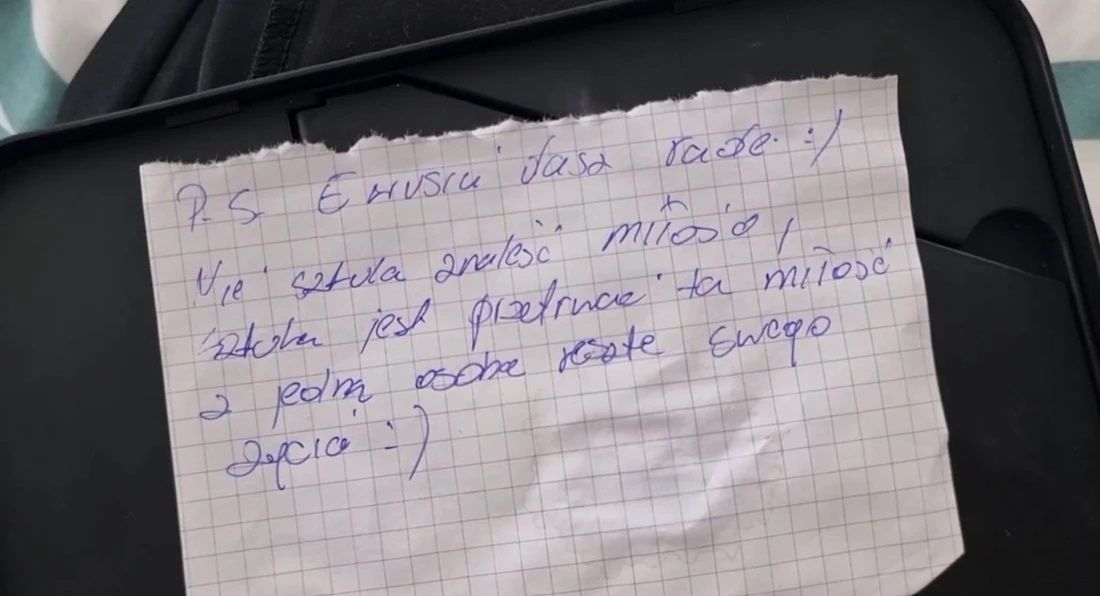 P.S. Enusiu dasz rade. :)
Nie sztuka znaleść miłość,
sztuka jest przetrwac ta miłość
z jedną osoba reszte swego
życia :)